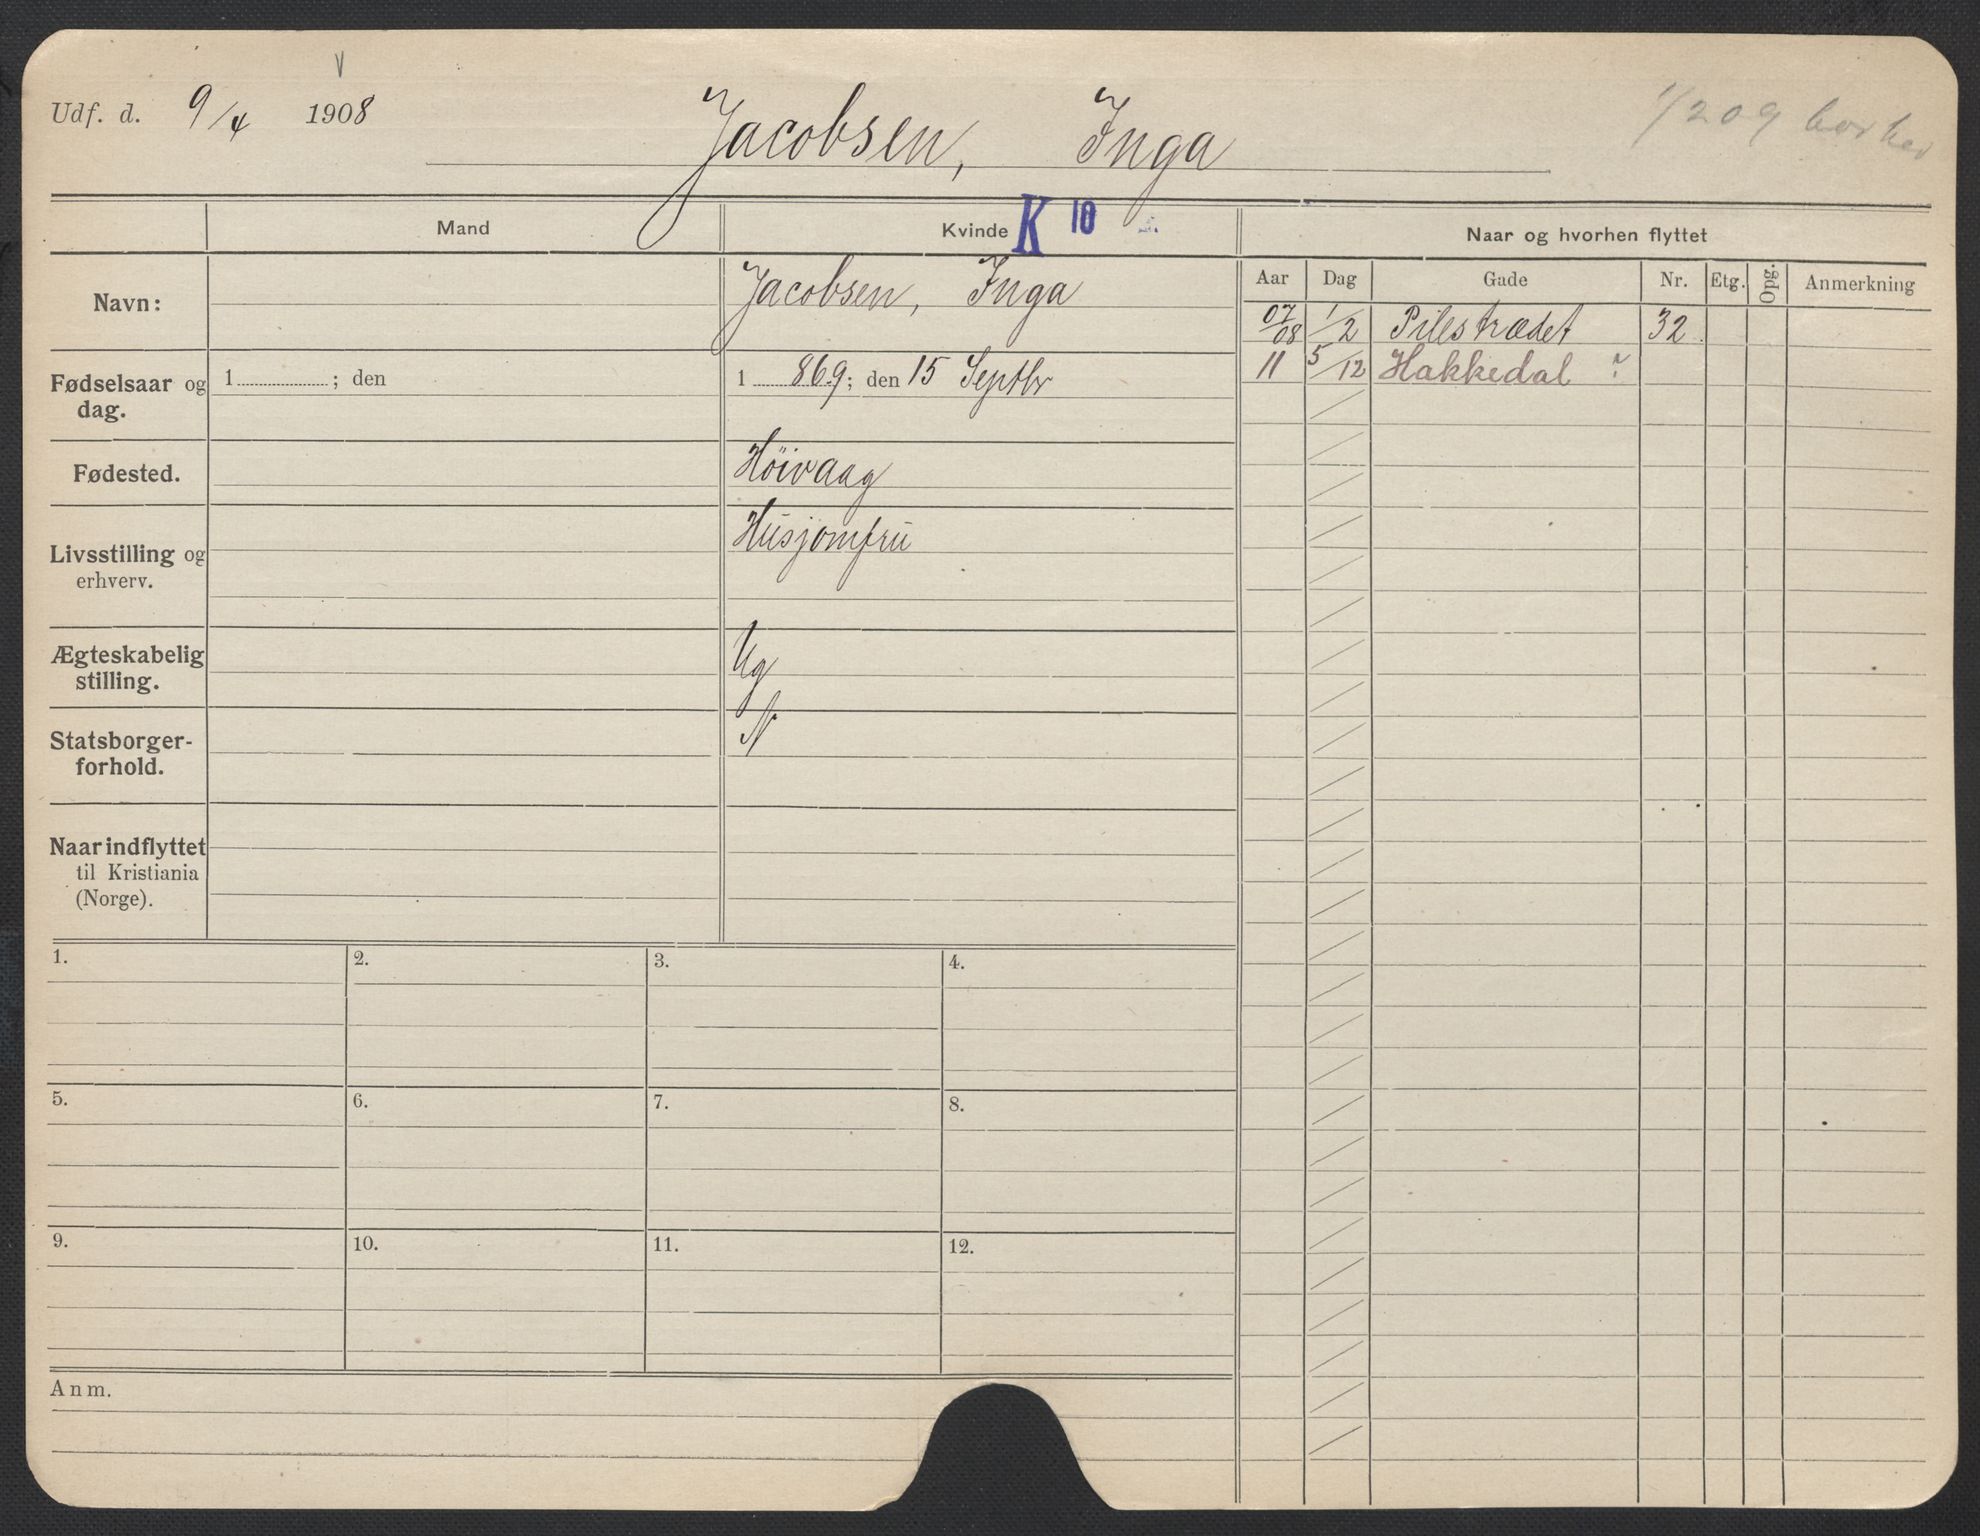 V
Udf. d. 9/4 1908
Jacobsen, Inga
1/2 09 bor her
Mand
Kvinde K 10
Naar og hvorhen flyttet
Aar Dag Gade Nr. Etg. Opg. Anmerkning
Navn: Jacobsen, Inga
07/08 1/2 Pilestrædet 32
11 5/12 Hakkedal ?
Fødselsaar og 1 ; den 1 869; den 15 Septbr
dag.
Fødested. Höivaag
Livsstilling og Husjomfru
erhverv.
Ægteskabelig Ug
stilling.
Statsborger- N
forhold.
Naar indflyttet
til Kristiania
(Norge).
1. 2. 3. 4.
5. 6. 7. 8.
9. 10. 11. 12.
Anm.